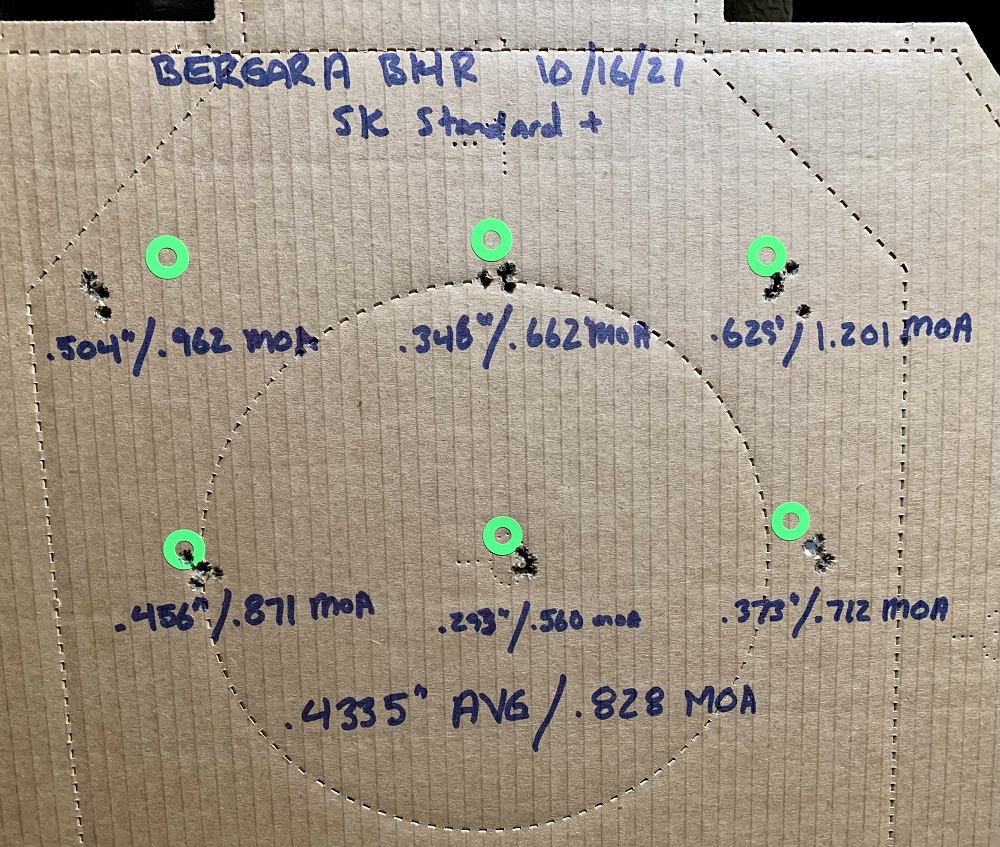 BERGARA BMR 10/16/21
SK Standard +
.504"/.962 MOA .346"/.662 MOA .629"/1.201 MOA
.456"/.871 MOA .293"/.560 MOA .373"/.712 MOA
.4335" AVG/.828 MOA